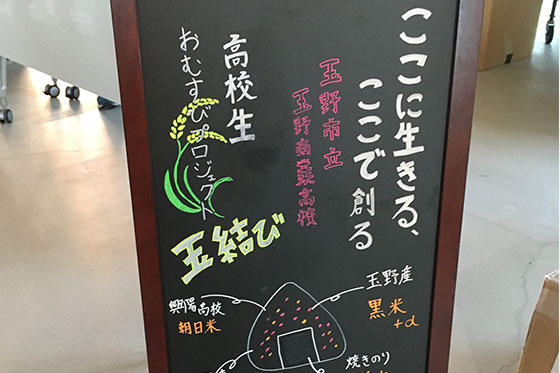 ここに生きる、
ここで創る
玉野市立
玉野商業高校
高校生
おむすびプロジェクト
玉結び
玉野産
黒米
+α
興陽高校
朝日米
焼きのり